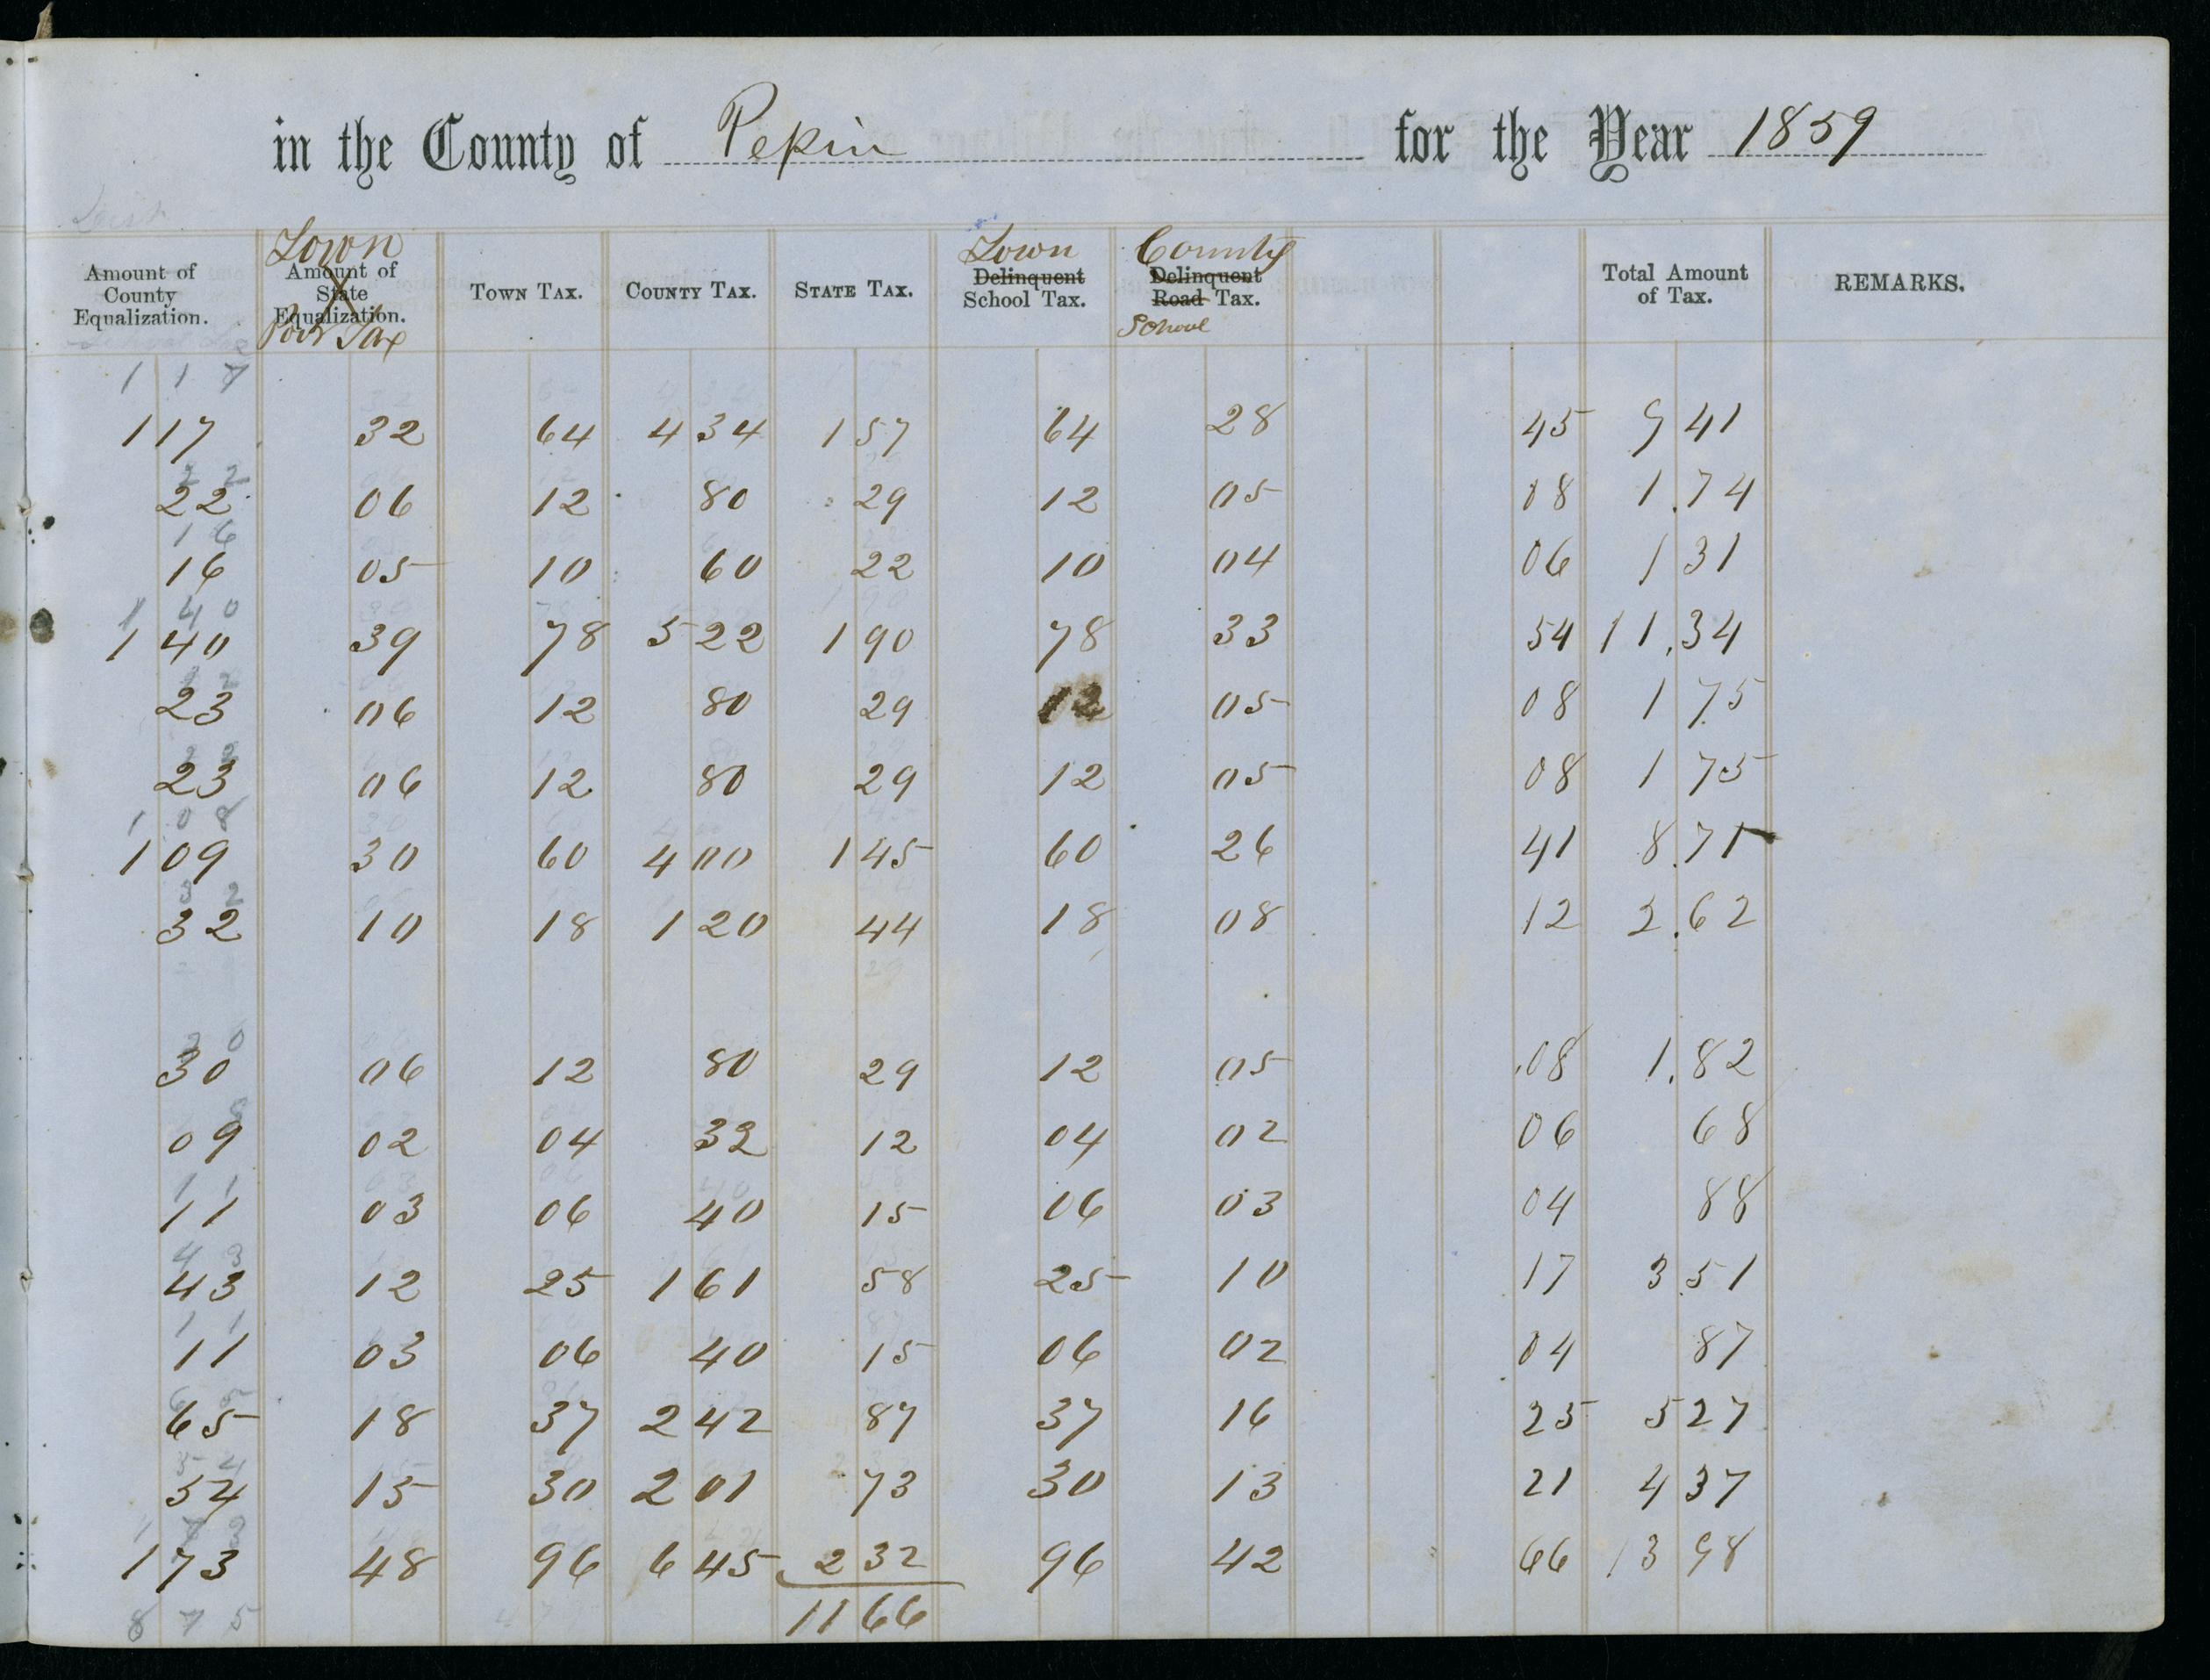 in the County of Pepin for the Year 1859
Town Town County
Amount of County Equalization. Amount of State Equalization. Poor Tax TOWN TAX. COUNTY TAX. STATE TAX. Delinquent School Tax. Delinquent Road Tax. School Total Amount of Tax. REMARKS.
1 1 7
1 17 32 64 4 34 1 57 64 28 45 9 41
2 2
22 06 12 80 29 12 05 08 1.74
1 6
16 05 10 60 22 10 04 06 1 31
1 4 0
1 40 39 78 5 22 1 90 78 33 54 11.34
23 06 12 80 29 12 05 08 1 75
23 06 12 80 29 12 05 08 1 75
1 0 8
1 09 30 60 4 00 1 45 60 26 41 8.71
3 2
32 10 18 1 20 44 18 08 12 2.62
30 06 12 80 29 12 05 .08 1.82
09 02 04 32 12 04 02 06 68
1 1
11 03 06 40 15 06 03 04 88
4 3
43 12 25 1 61 58 25 10 17 3 51
1 1
11 03 06 40 15 06 02 04 87
6 5
65 18 37 2 42 87 37 16 25 5 27
5 4
54 15 30 2 01 73 30 13 21 4 37
1 7 3
1 73 48 96 6 45 2 32 96 42 66 13 98
8 7 5 11 66